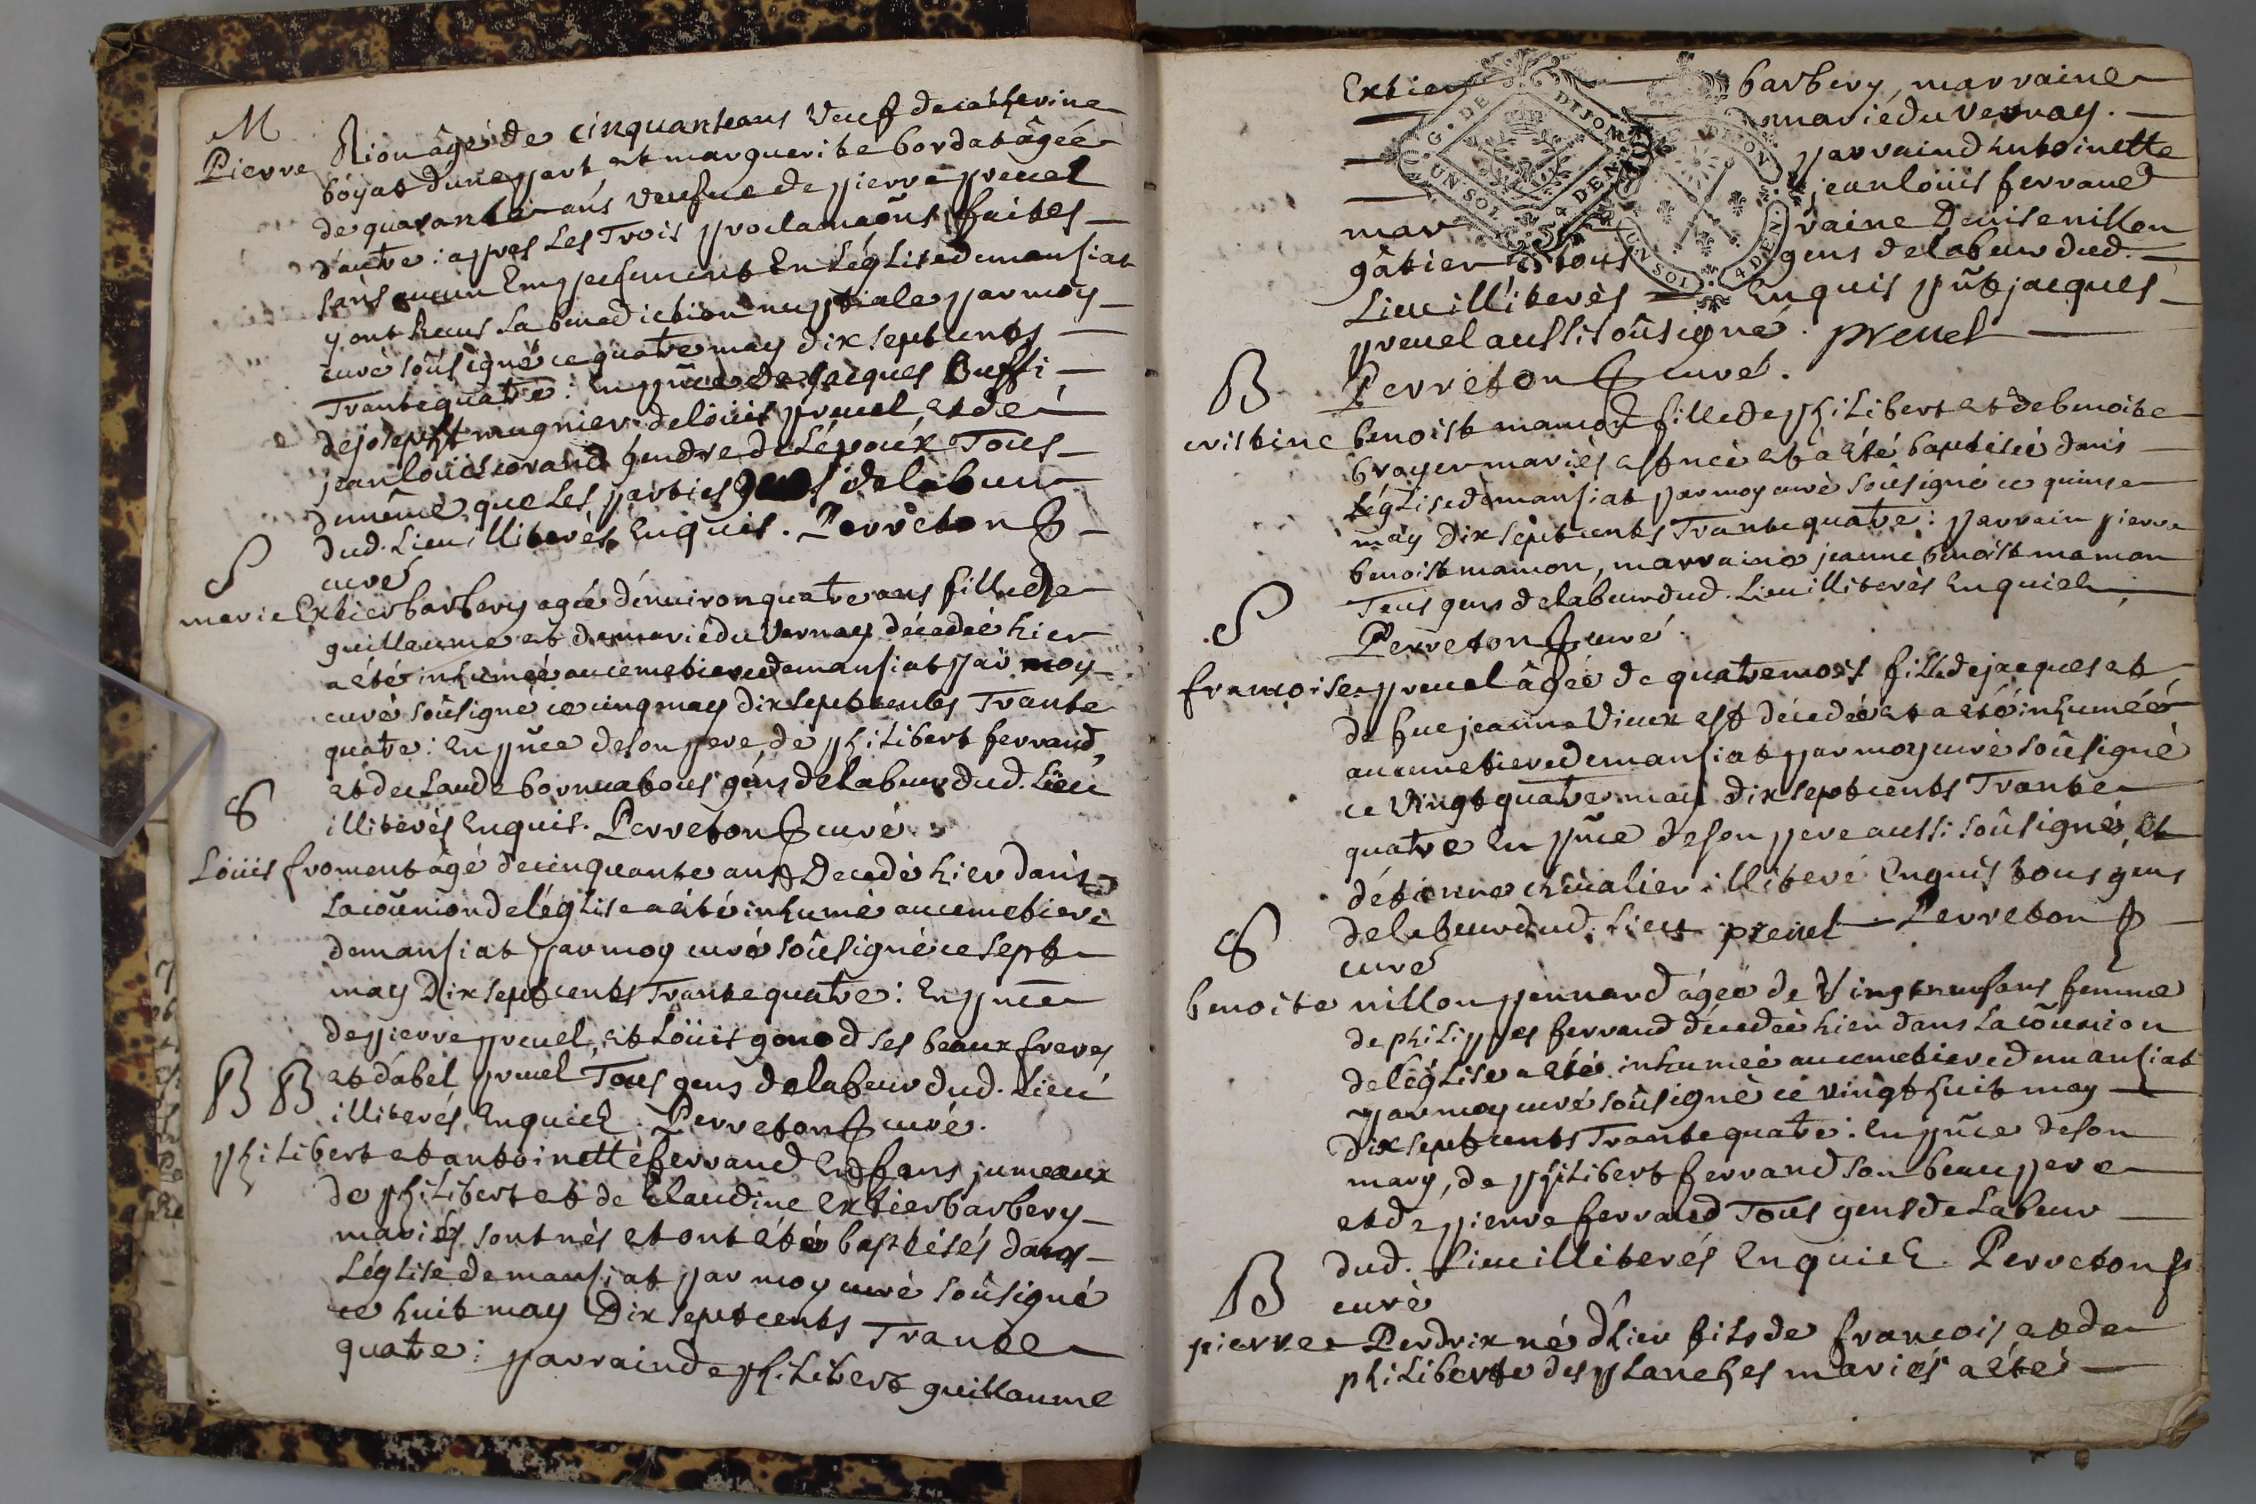 M
Pierre Rion âgé de cinquante ans Veuf de catherine
boyat d'une part, et marguerite bordat âgée
de quarante ans veufue de pierre preuel
d'autre: apres Les Trois proclamaõns faites
sans aucun Empeschement En Léglise demansiat
y ont Receus La benediction nuptiale par moy
curé soûsigné ce quatre may dix sept cents
Trante quatre: En pñce de Jacques Buffi
de joseph mugnier de loüis preuel, et de
jean loüis morand gendre de Lépoux Tous
demême que Les parties gens delabeur
dud. Lieu illiterés Enquis. Perreton
curé
S
marie Extier barbery agée d'enuiron quatre ans fille de
guillaume et de marie du Vernay décedée hier
a été inhumée au cemetiere demansiat par moy
curé soûsigné ce cinq may dix sept cents Trante
quatre: En pñce de son pere, de philibert ferrand,
et de claude bornuat tous gens delabeur dud. Lieu
illiterés Enquis. Perreton curé.
S
Loüis froment âgé de cinquante ans Decedé hier dans
La coũnion de léglise a été inhumé au cemetiere
demansiat par moy curé soûsigné ce sept
may Dix sept cents Trante quatre: En pñce
de pierre preuel, et Loüis gonod ses beaux freres
et d'abel preuel Tous gens delabeur dud. Lieu
illiterés Enquiz. Perreton curé.
B B
philibert et antoinette ferrand Enfans jumeaux
de philibert et de Claudine Extier barbery
mariés sont nés et ont été baptésés dans
Léglise demansiat par moy curé soûsigné
ce huit may Dix sept cents Trante
quatre: parrain de philibert guillaume
Extier barbery, marraine
marie du Vernay.
parrain d'antoinette
jean loüis ferrand
mar raine Denise nillon
gâtier tous gens delabeur dud.
Lieu illiterés Enquis pñt jacques
preuel aussi soûsigné. preuel
Perreton curé.
B
cristine benoist mamon fille de philibert et de benoite
broyer mariés est née et a été baptisée dans
léglise demansiat par moy curé soûsigné ce quinse
may Dix sept cents Trante quatre: parrain pierre
benoist mamon, marraine jeanne benoist mamon
Tous gens delabeur dud. Lieu illiterés Enquiz
Perreton curé.
S
francoise preuel âgée de quatre mois fille de jacques et
de fue jeanne Vieux est décedée et a été inhumée
au cemetiere demansiat par moy curé soûsigné
ce Vingt quatre may dix sept cents Trante
quatre En pñce de son pere aussi soûsigné, et
d'étienne cheualier illiteré Enquis tous gens
delabeur dud. Lieu preuel Perreton
curé
S
benoite nillon pennard âgée de Vingt neuf ans femme
de philippes ferrand décedée hier dans La coũnion
de léglise a été inhumée au cemetiere demansiat
par moy curé soûsigné ce vingt huit may
Dix sept cents Trante quatre: En pñce de son
mary, de philibert ferrand son beau pere
et de pierre ferrand Tous gens de Labeur
dud. Lieu illiterés Enquiz. Perreton
curé
B
pierre Perdrix né d'hier fils de francois et de
philiberte des planches mariés a été
G. DE DIJON
UN SOL 4 DEN.
DIJON
UN SOL 4 DEN.